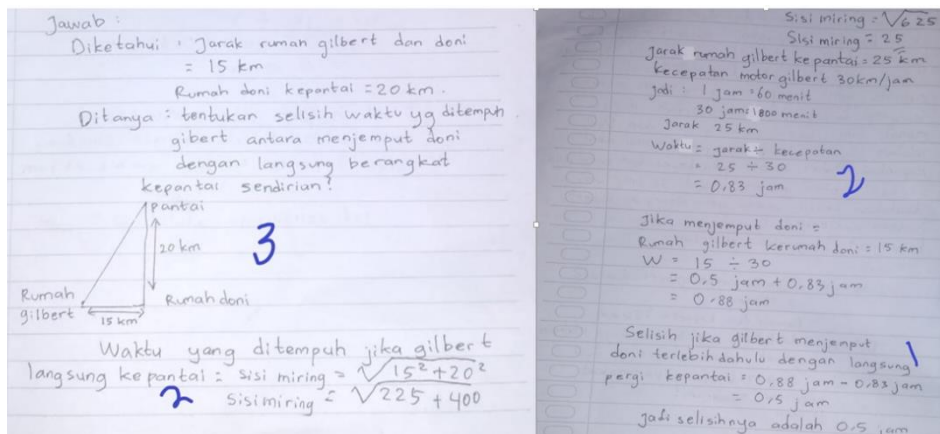 Jawab :
Diketahui : Jarak rumah gilbert dan doni
= 15 km
Rumah doni kepantai = 20 km.
Ditanya : tentukan selisih waktu yg ditempuh
gibert antara menjemput doni
dengan langsung berangkat
kepantai sendirian?
pantai
20 km
3
Rumah gilbert
Rumah doni
15 km
Waktu yang ditempuh jika gilbert
langsung ke pantai = sisi miring = √15² + 20²
2
sisi miring = √225 + 400
Sisi miring = √625
Sisi miring = 25
Jarak rumah gilbert ke pantai = 25 km
Kecepatan motor gilbert 30km/jam
Jadi : 1 jam = 60 menit
30 jam = 1800 menit
Jarak 25 km
Waktu = jarak ÷ kecepatan
= 25 ÷ 30
= 0.83 jam
2
Jika menjemput doni =
Rumah gilbert kerumah doni = 15 km
W = 15 ÷ 30
= 0,5 jam + 0,83 jam
= 0.88 jam
Selisih jika gilbert menjemput
doni terlebih dahulu dengan langsung
1
pergi kepantai = 0,88 jam - 0.83 jam
= 0,5 jam
Jadi selisihnya adalah 0.5 jam